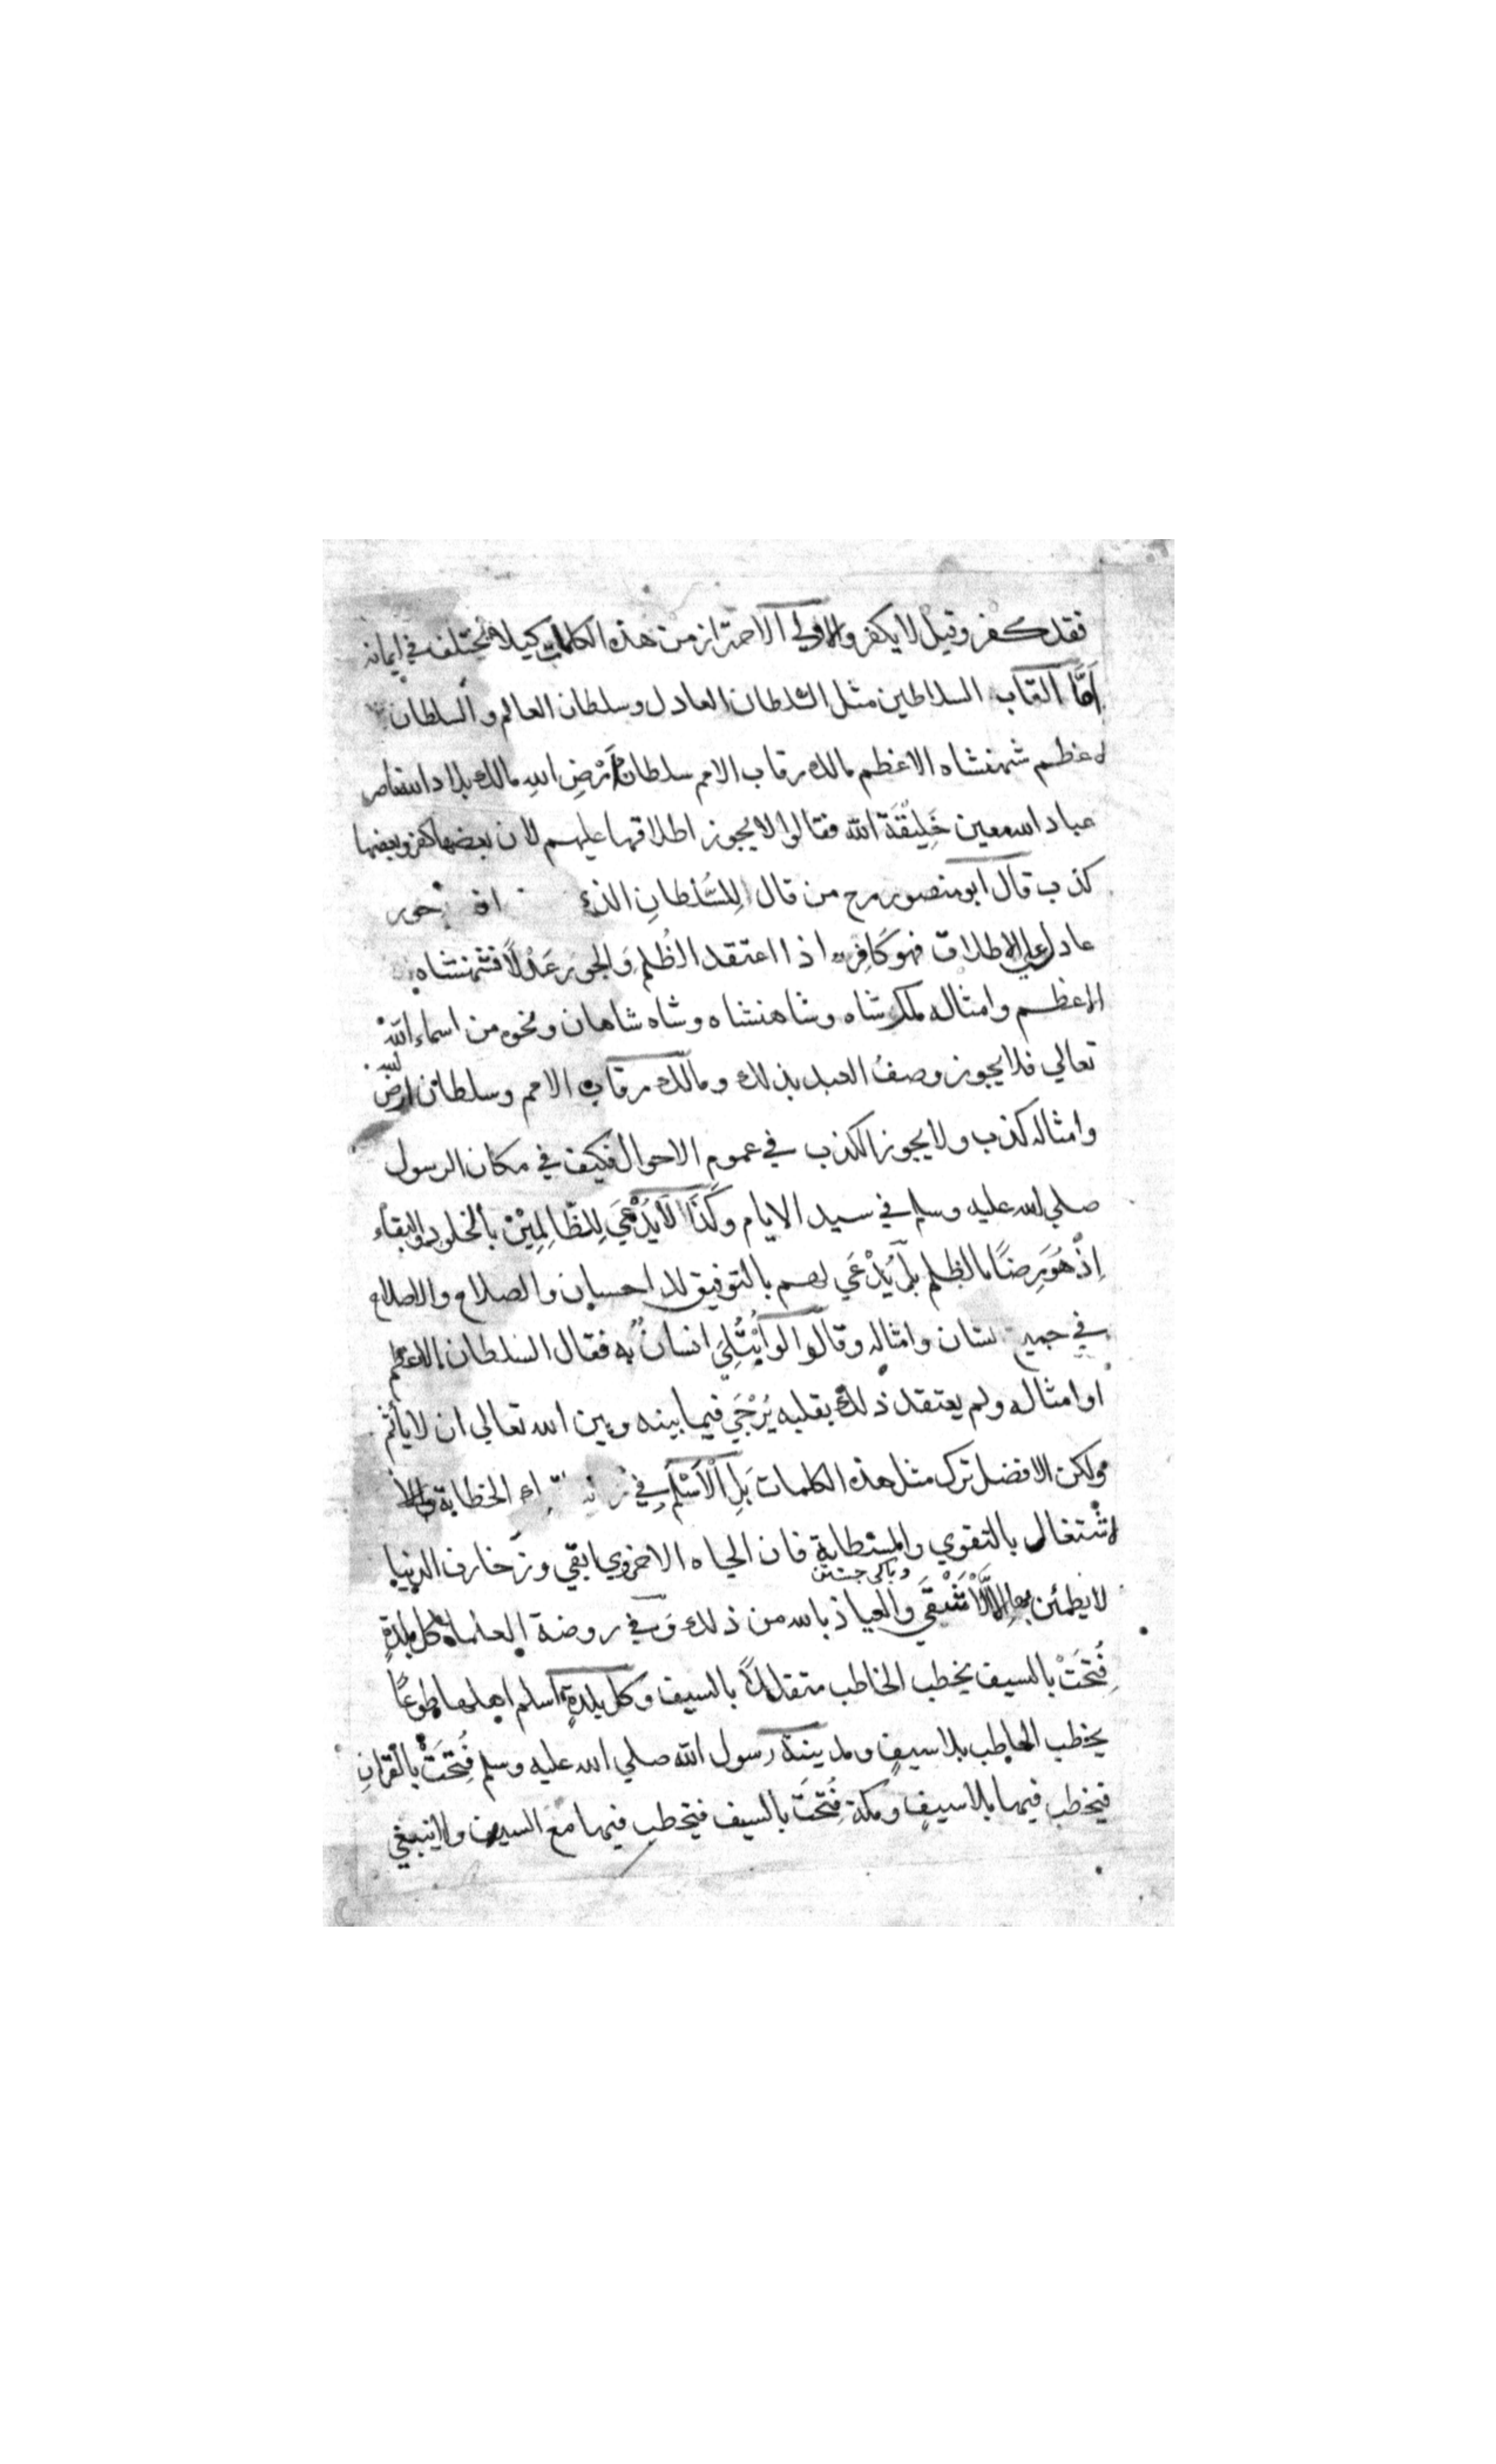 فقد كفر وقيل لا يكفر والاولى الاحتراز من هذه الكلمات كيلا يختلف في ايمانه
اَمَّا القاب السلاطين مثل السلطان العادل وسلطان العالم والسلطان
لاعظم شهنشاه الاعظم مالك رقاب الامم سلطان اَرْضِ اللهِ مالك بلاد الله ناصر
عباد الله معين خَلِيْقَة الله فقالوا لا يجوز اطلاقها عليهم لان بعضها كفر وبعضها
كذب قال ابو منصور رح من قال لِلسُّلْطانِ الذي
عادل على الاطلاق فهو كَافِر اذا اعتقد الظُلم وَالجور عَدْلاً فشهنشاه
الاعظم وامثاله ملكشاه وشاهنشاه وشاه شاهان ونحوه من اسماء اللهْ
تعالي فلا يجوز وصفُ العبد بذلك ومالك رقاب الامم وسلطان ارض لله
وامثاله كذب ولا يجوز الكذب في عموم الاحوال فكيف في مكان الرسول
صلي الله عليه وسلم في سيد الايام وكَذَا لاَيُدْعَي لِلظَّالِمِيْن بالخلود والبقاء
اِذْ هُوَ رِضَاً بالظلم بل يُدْعَي لهم بالتوفيق للاحسان والصلاح والاصلاح
في جميع الشان وامثاله وقالوا لو اُبْتُلِيَ انسانٌ به فقال السلطان الاعظم
او امثاله ولم يعتقد ذلك بقلبه يُرْجَي فيما بينه وبين الله تعالي ان لا يأثم
ولكن الافضل ترك مثل هذه الكلمات بَلِ اْلاَسْلَم في الخطابة والا
شتغال بالتقوي والاستطابة فان الحياه الاخروي ابقي وزخارف الدنيا
لا يطمئن بها اِلاَّ اْلاَشْقَي والعياذ بالله من ذلك وَفي روضة العلماء كل بلدةٍ
فُتِحَتْ بالسيف يخطب الخاطب متقلداً بالسيف وكل بلدةٍ اسلم اهلها طوعاً
يخطب الخاطب بلا سيفٍ ومدينة رسول الله صلي الله عليه وسلم فُتِحَتْ بالقرانِ
فيخطب فيها بلا سيفٍ ومكة فُتِحَتْ بالسيف فيخطب فيها مع السيف ولا ينبغي